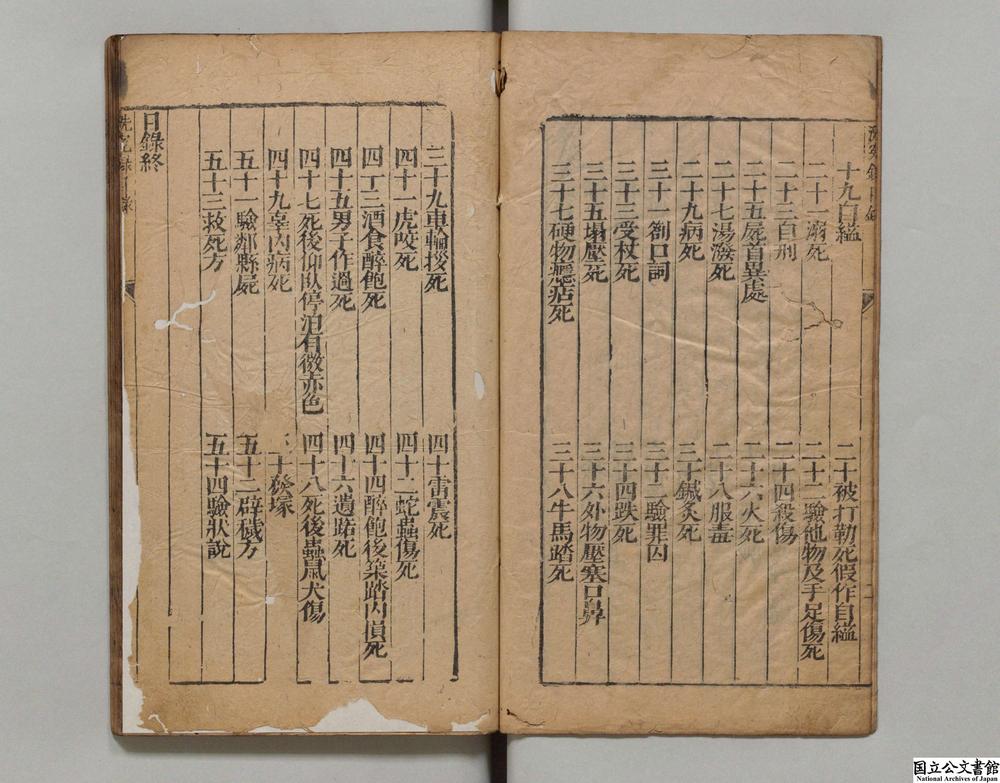 十九自縊
二十被打勒死假作自縊
二十一溺死
二十二驗他物及手足傷死
二十三自刑
二十四殺傷
二十五屍首異處
二十六火死
二十七湯潑死
二十八服毒
二十九病死
三十鍼灸死
三十一劄口詞
三十二驗罪囚
三十三受杖死
三十四跌死
三十五塌壓死
三十六外物壓塞口鼻
三十七硬物癮痁死
三十八牛馬踏死
三十九車輪拶死
四十雷震死
四十一虎咬死
四十二蛇蟲傷死
四十三酒食醉飽死
四十四醉飽後築踏內損死
四十五男子作過死
四十六遺路死
四十七死後仰臥停泊有微赤色
四十八死後蟲鼠犬傷
四十九辜內病死
十發塚
五十一驗鄰縣屍
五十二辟穢方
五十三救死方
五十四驗狀說
目錄終
国立公文書館
National Archives of Japan